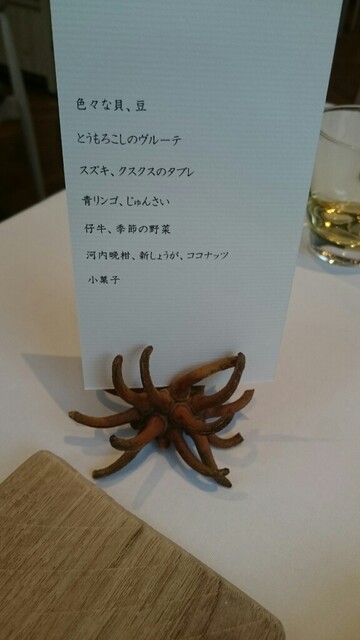 色々な貝、豆
とうもろこしのヴルーテ
スズキ、クスクスのタブレ
青リンゴ、じゅんさい
仔牛、季節の野菜
河内晩柑、新しょうが、ココナッツ
小菓子